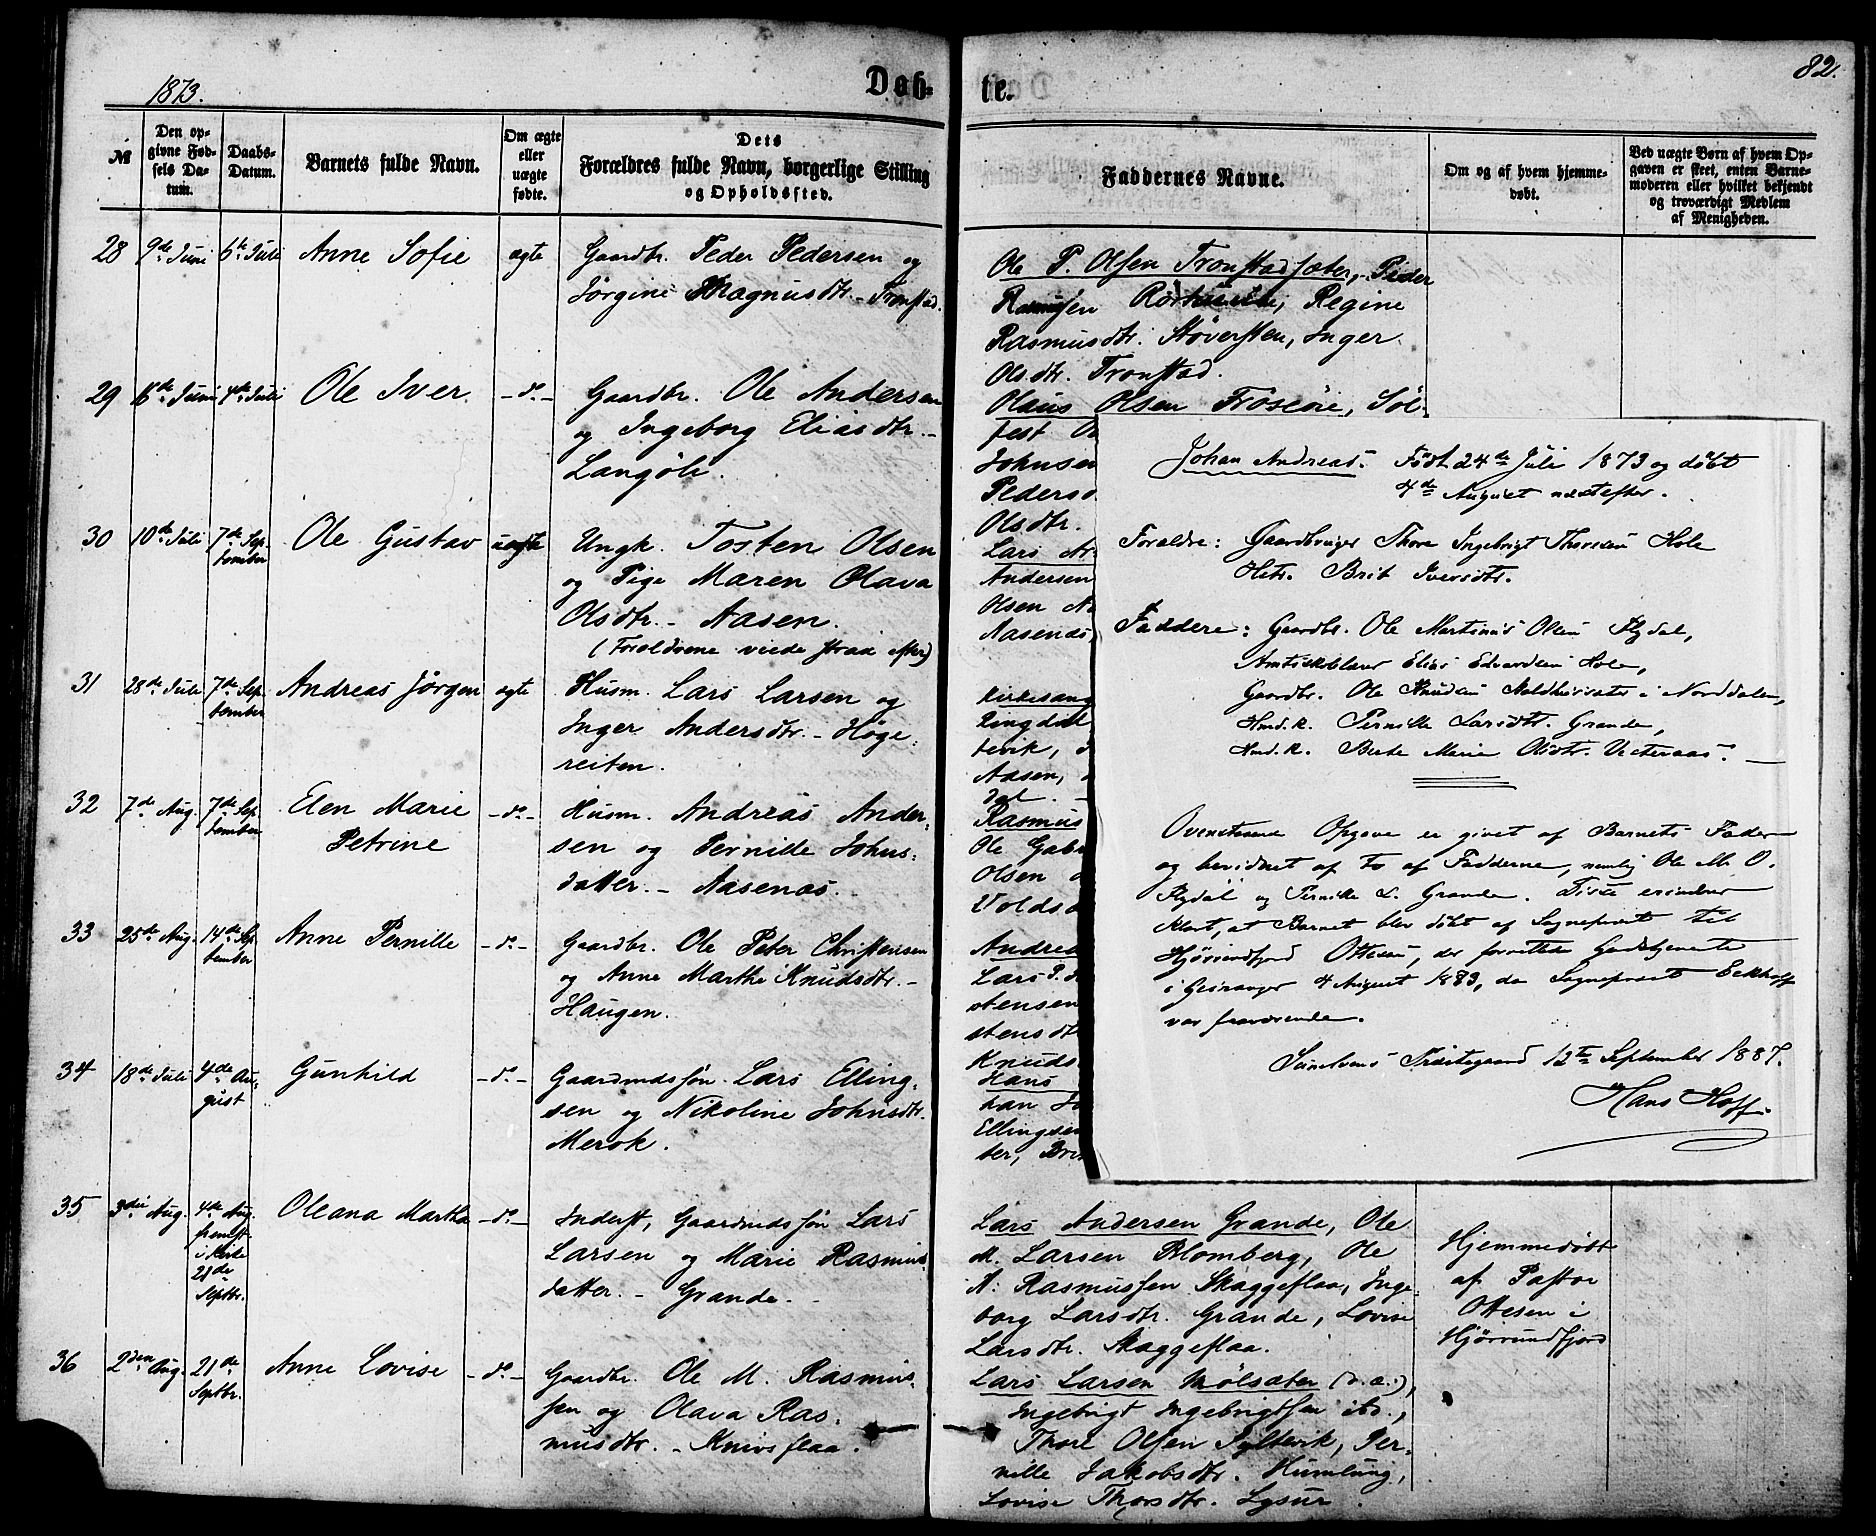 1873.
Døb-
te.
82.
№
Den op-
givne Fød-
sels Da-
tum.
Daabs-
Datum.
Barnets fulde Navn.
Om ægte
eller
uægte
fødte.
Dets
Forældres fulde Navn, borgerlige Stilling
og Opholdssted.
Faddernes Navne.
Om og af hvem hjemme-
døbt.
Ved uægte Børn af hvem Op-
gaven er skeet, enten Barne-
moderen eller hvilket bekjendt
og troværdigt Medlem
af Menigheden.
28 9de Juni 6te Juli Anne Sofie ægte
Gaardbr. Peder Pedersen og
Jørgine Magnusdtr. - Tronstad.
Ole P. Olsen Tronstadsæter, Peder
Rasmussen Regine
Rasmusdtr. Støversten, Inger
Olsdtr. Tronstad.
29 16de Juni 4de Juli Ole Iver - do. -
Gaardbr. Ole Andersen
og Ingeborg Eliasdtr. -
Langøle.
Olaus Olsen Frøseøie, Søl-
fest
Johnsen
Peders
Olsdtr.
30 10de Juli 7de Sep-
tember
Ole Gustav uægte
Ungk. Tosten Olsen
og Pige Maren Olava
Olsdtr. - Aasen.
(Forældrene viede strax efter)
Lars
Andersen
Olsen
Aasen
31 28de Juli 7de Sep-
tember
Andreas Jørgen ægte
Husm. Lars Larsen og
Inger Andersdtr. - Høge-
reiten.
Kirkesang
Ringdal
tevik,
Aasen,
dal. -
32 7de Aug. 7de Sep-
tember
Elen Marie
Petrine
- do. -
Husm. Andreas Ander-
sen og Pernille Johns-
datter. - Aasenæs.
Rasmus
Ole Gab
Olsen
Volds
33 25de Aug. 14de Sep-
tember
Anne Pernille - do. -
Gaardbr. Ole Peter Christensen
og Anne Marthe Knudsdtr. -
Haugen.
Andrea
Lars P.
stensen
stensdt
Knuds
34 18de Juli 4de Au-
gust
Gunhild - do. -
Gaardmdssøn Lars Elling-
sen og Nikoline Johnsdtr.
Merok.
Hans
han Jo
Ellingsen
ter, Bri
35 3die Aug. 4de Aug.
fremst.
i Kirke
21de
Septbr.
Oleana Martha - do. -
Inderst, Gaardmdssøn Lars
Larsen og Marie Rasmus-
datter. - Grande. -
Lars Andersen Grande, Ole
M. Larsen Blomberg, Ole
A. Rasmussen Skaggeflaa, Inge-
borg Larsdtr. Grande, Lovise
Larsdtr. Skaggeflaa.
Hjemmedøbt
af Pastor
Ottesen i
Hjørundfjord
36 2den Aug. 21de
Septbr.
Anne Lovise - do. -
Gaardbr. Ole M. Rasmus-
sen og Olava Ras-
musdtr. - Knivsflaa.
Lars Larsen Mølsæter
Ingebrigt Ingebrigtsen ibd.,
Thore Olsen Syltevik, Per-
nille Jakobsdtr. Humlung,
Lovise Thorsdtr. Lysur.
Johan Andreas. Født 24de Juli 1873 og døbt
4de August næstefter.
Forældre: Gaardbruger Thore Ingebrigt Thoresen Hole
Hstr. Brit Iversdtr.
Faddere: Gaardbr. Ole Martinus Olsen Flydal,
Amtsskolelærer Elias Edvardsen Hole,
Gaardbr. Ole Knudsen i Norddalen,
Hmd.K. Pernille Larsdtr. Grande,
Hmd.K. Berte Marie Olsdtr. Vesteraas. -
Ovenstaaende Opgave er givet af Barnets Fader
og bevidnet af to af Fadderne, nemlig Ole M. O.
Flydal og Pernille L. Grande. Disse erindrer
klart, at Barnet blev døbt af Sogneprest til
Hjørundfjord Ottesen, der forrettede Gudstjeneste
i Geiranger 4 August 1883, da Sogneprest Eckhoff
var fraværende.
Sunelvens Præstegaard 12te September 1887.
Hans Hoff.